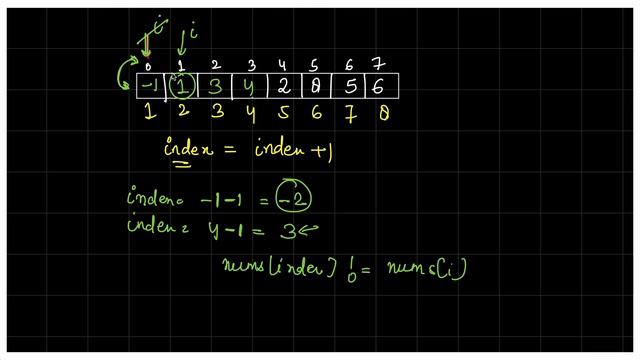 i i
0 1 2 3 4 5 6 7
-1 1 3 4 2 0 5 6
1 2 3 4 5 6 7 8
index = index + 1
index = -1-1 = -2
index = 4-1 = 3
nums[index] != nums[i]